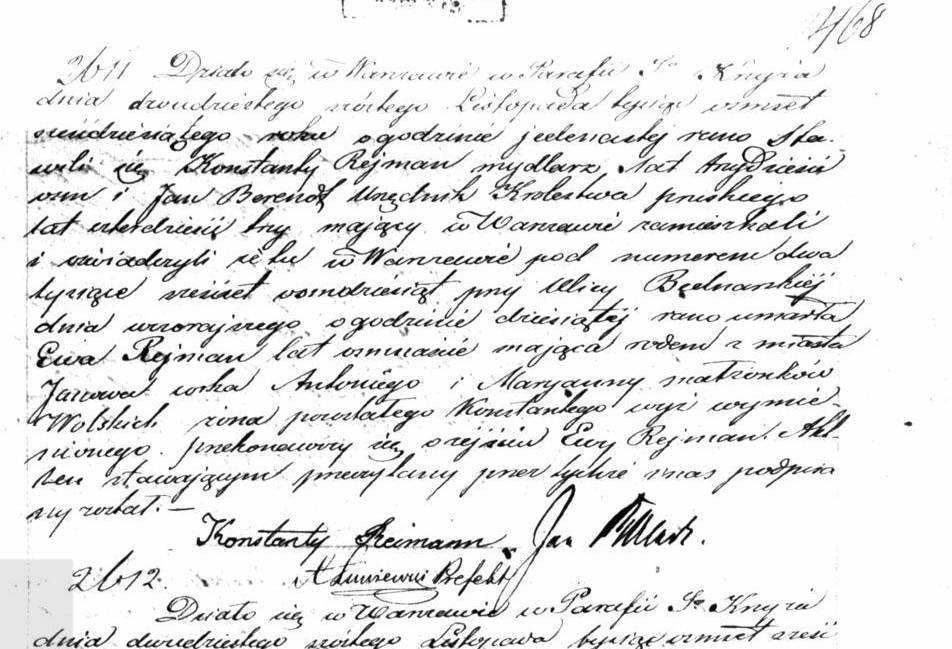 468
2611 Działo się w Warszawie w Parafii Sº Krzyża
dnia dwudziestego szóstego Listopada tysiąc ośmset
roku o godzinie jedenastej rano Sta-
wili się Konstanty Rejman mydlarz lat trzydzieści
ośm i Jan Berendt Urzędnik Królestwa pruskiego
lat czterdzieści trzy mający w Warszawie zamieszkali
i oświadczyli że tu w Warszawie pod numerem dwa
tysiące sześćset ośmdziesiąt przy Ulicy Bednarskiej
dnia wczorajszego o godzinie dziesiątej rano umarła
Ewa Rejman lat ośmnaście mająca rodem z miasta
córka Antoniego i Maryanny małżonków
Wolskich żona pozostałego Konstantego wyż wymie-
nionego. przekonawszy się o zejściu Ewy Rejman. Akt
ten stawającym przeczytany przez tychże i nas podpisa
ny został. —
Konstanty Reimann. Jan
Prefekt
2612.
Działo się w Warszawie w Parafii Sº Krzyża
dnia dwudziestego szóstego Listopada tysiąc ośmset sześć